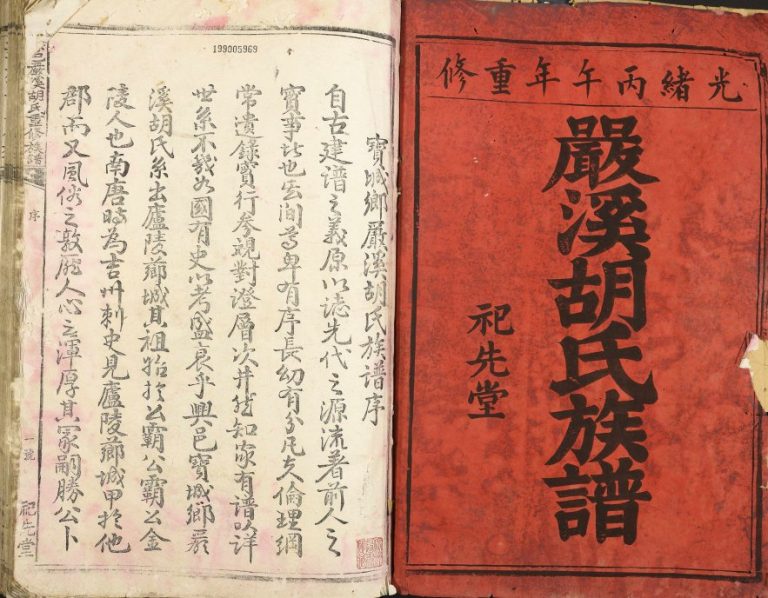 光緒丙午年重修
嚴溪胡氏族譜
祀先堂
199005969
寳城鄉嚴溪胡氏族譜序
自古建譜之義原以誌先代之源流著前人之
實事比也玄間尊卑有序長幼有分凡夫倫理綱
常遺錄實行參視對證層次井然知家有譜以詳
世系不幾如國有史以考盛衰乎興邑寳城鄉嚴
溪胡氏系出廬陵薌城其祖始於公霸公霸公金
陵人也南唐時為吉州刺史見廬陵薌城甲於他
郡而又風俗之敦厖人心之渾厚其冢嗣勝公卜
嚴溪胡氏重修族譜
序
一號
祀先堂